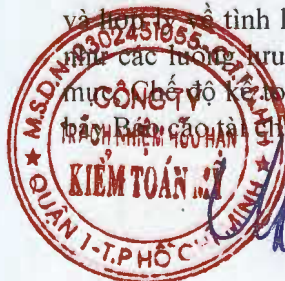 và hợp lý về tình h
như các luồng lưu
mực, Chế độ kế to
bày Báo cáo tài ch
M.S.D.N: 0302451055
CÔNG TY
TRÁCH NHIỆM HỮU HẠN
KIỂM TOÁN
QUẬN 1-T.P HỒ CHÍ MINH